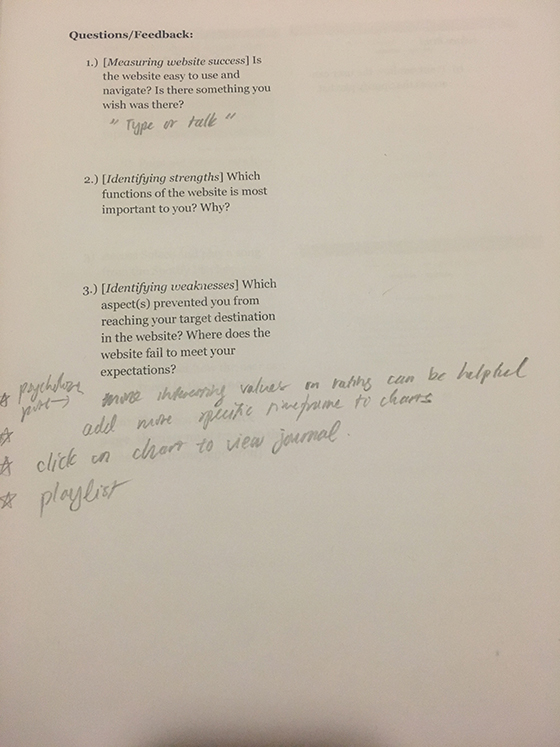 Questions/Feedback:
1.) [Measuring website success] Is
the website easy to use and
navigate? Is there something you
wish was there?
" Type or talk "
2.) [Identifying strengths] Which
functions of the website is most
important to you? Why?
3.) [Identifying weaknesses] Which
aspect(s) prevented you from
reaching your target destination
in the website? Where does the
website fail to meet your
expectations?
☆ → more values on rating can be helpful
☆ add more specific timeframe to charts
☆ click on chart to view journal.
☆ playlist